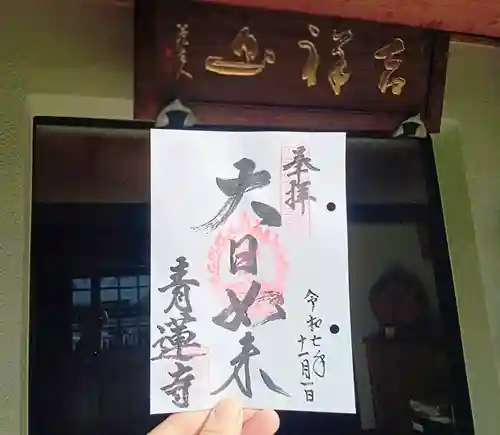 吉祥山
奉拝
大日如来
令和七年
十一月一日
青蓮寺